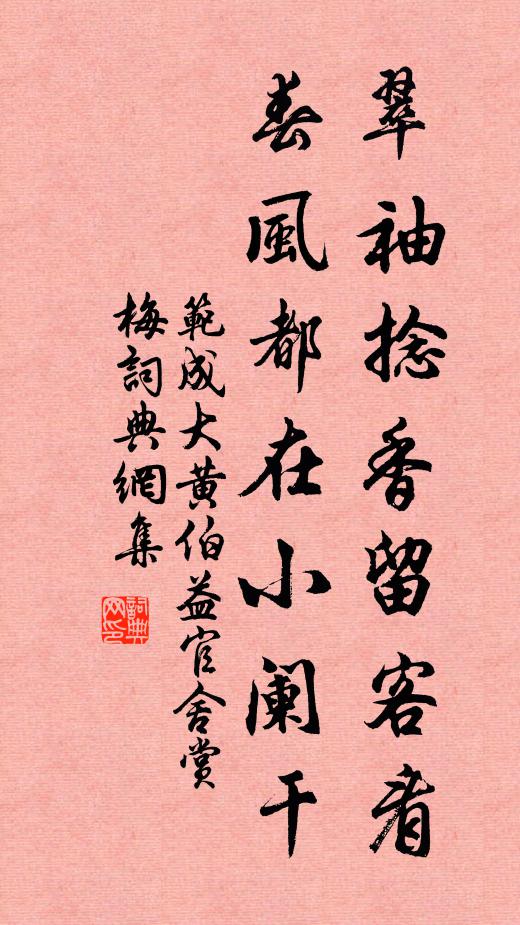 翠袖捻香留客看
春風都在小闌干
範成大黄伯益官舍賞
梅詞典網集
詞典网印